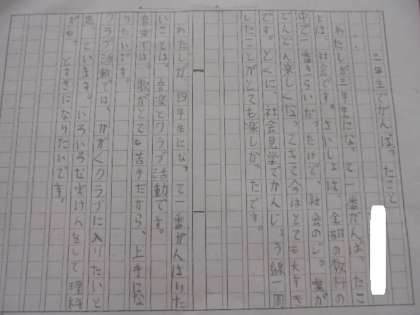 三年生でがんばったこと
わたしが三年生になって一番がんばったこ
とは、社会です。さいしょは、全部の教科の
中で一番きらいだったけど、社会のじゅ業が
どんどん楽しくなってきて今はとても大すき
です。とくに、社会見学でかんじょう線一周
したことがとても楽しかったです。
わたしが、四年生になって一番がんばりた
いことは、音楽とクラブ活動です。
音楽では、歌がとても苦手だから、上手にな
りたいです。
クラブ活動では、かがくクラブに入りたいと
思っています。いろいろなじっけんをして理科
がとくいになりたいです。